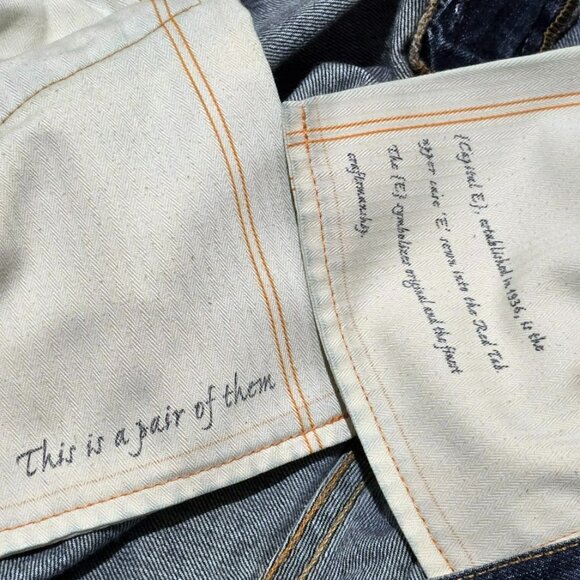 This is a pair of them
{Capital E}, established in 1936, is the
upper case 'E' sewn into the Red Tab.
The {E} symbolizes original and the finest
craftsmanship.